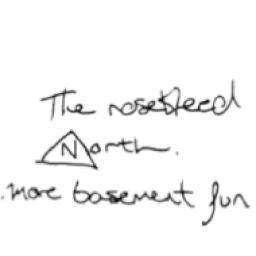 The nosebleed
North.
more basement fun